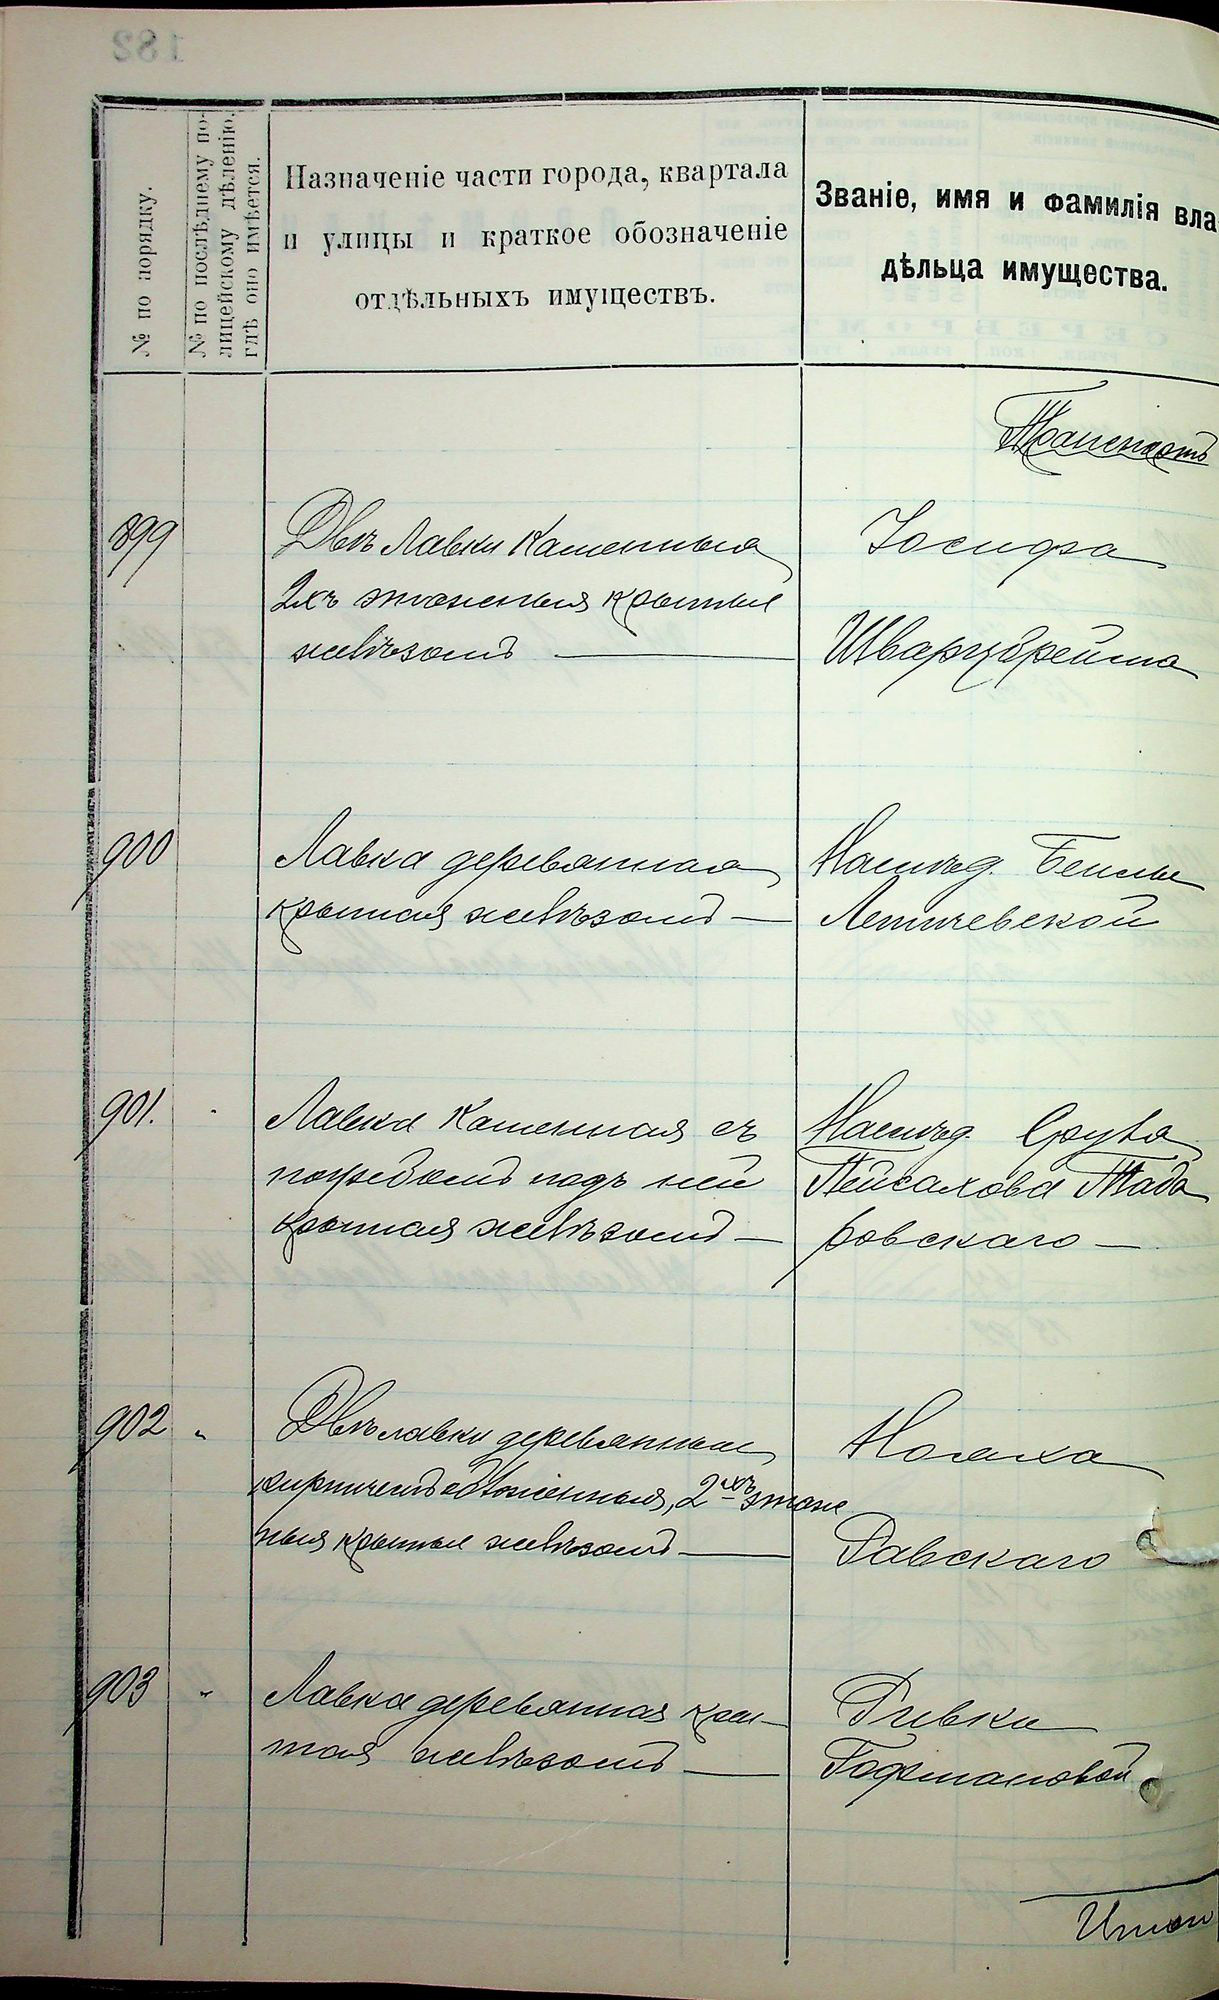 182
№ по порядку.
№ по послѣднему по-
лицейскому дѣленію,
гдѣ оно имѣется.
Назначеніе части города, квартала
и улицы и краткое обозначеніе
отдѣльныхъ имуществъ.
Званіе, имя и фамилія вла-
дѣльца имущества.
Транспортъ
899
Двѣ лавки каменныя
2хъ этажныя крытыя
желѣзомъ —
Іосифа
Шварцбрейма
900
Лавка деревянная
крытая желѣзомъ —
Наслѣд. Бейлы
Летичевской
901.
Лавка каменная съ
погребомъ подъ ней
крытая желѣзомъ —
Наслѣд. Сруля
Пейсахова Теодо
ровскаго —
902 "
Двѣ лавки деревянные
кирпичемъ обложенныя, 2хъ этаж
ныя крытые желѣзомъ —
Равскаго
903 "
Лавка деревянная кры-
тая желѣзомъ —
Ривки
Гофмановой
Итого